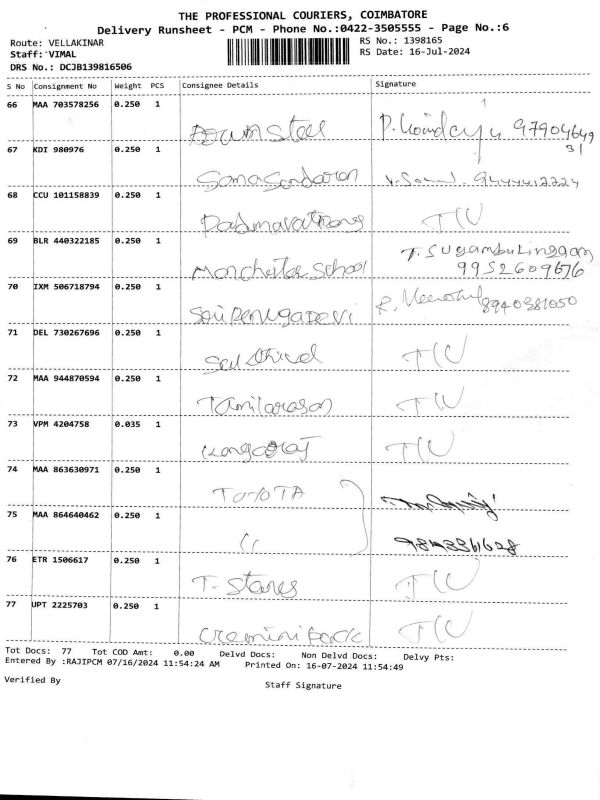 THE PROFESSIONAL COURIERS, COIMBATORE
Delivery Runsheet - PCM - Phone No.:0422-3505555 - Page No.:6
Route: VELLAKINAR RS No.: 1398165
Staff: VIMAL RS Date: 16-Jul-2024
DRS No.: DCJB139816506
S No Consignment No Weight PCS Consignee Details Signature
66 MAA 703578256 0.250 1
Steel 9790464931
67 KDI 980976 0.250 1
9444412224
68 CCU 101158839 0.250 1
TCV
69 BLR 440322185 0.250 1
Manchester School
9952609676
70 IXM 506718794 0.250 1
8940381050
71 DEL 730267696 0.250 1
TCV
72 MAA 944870594 0.250 1
Tamilarasan TCV
73 VPM 4204758 0.035 1
Kangaraj TCV
74 MAA 863630971 0.250 1
TOYOTA
75 MAA 864640462 0.250 1
9843361628
76 ETR 1506617 0.250 1
T. Stanes TCV
77 UPT 2225703 0.250 1
TCV
Tot Docs: 77 Tot COD Amt: 0.00 Delvd Docs: Non Delvd Docs: Delvy Pts:
Entered By :RAJIPCM 07/16/2024 11:54:24 AM Printed On: 16-07-2024 11:54:49
Verified By Staff Signature